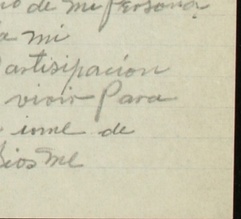 de mi Persona
mi
artisipación
vivir Para
irme de
Dios me